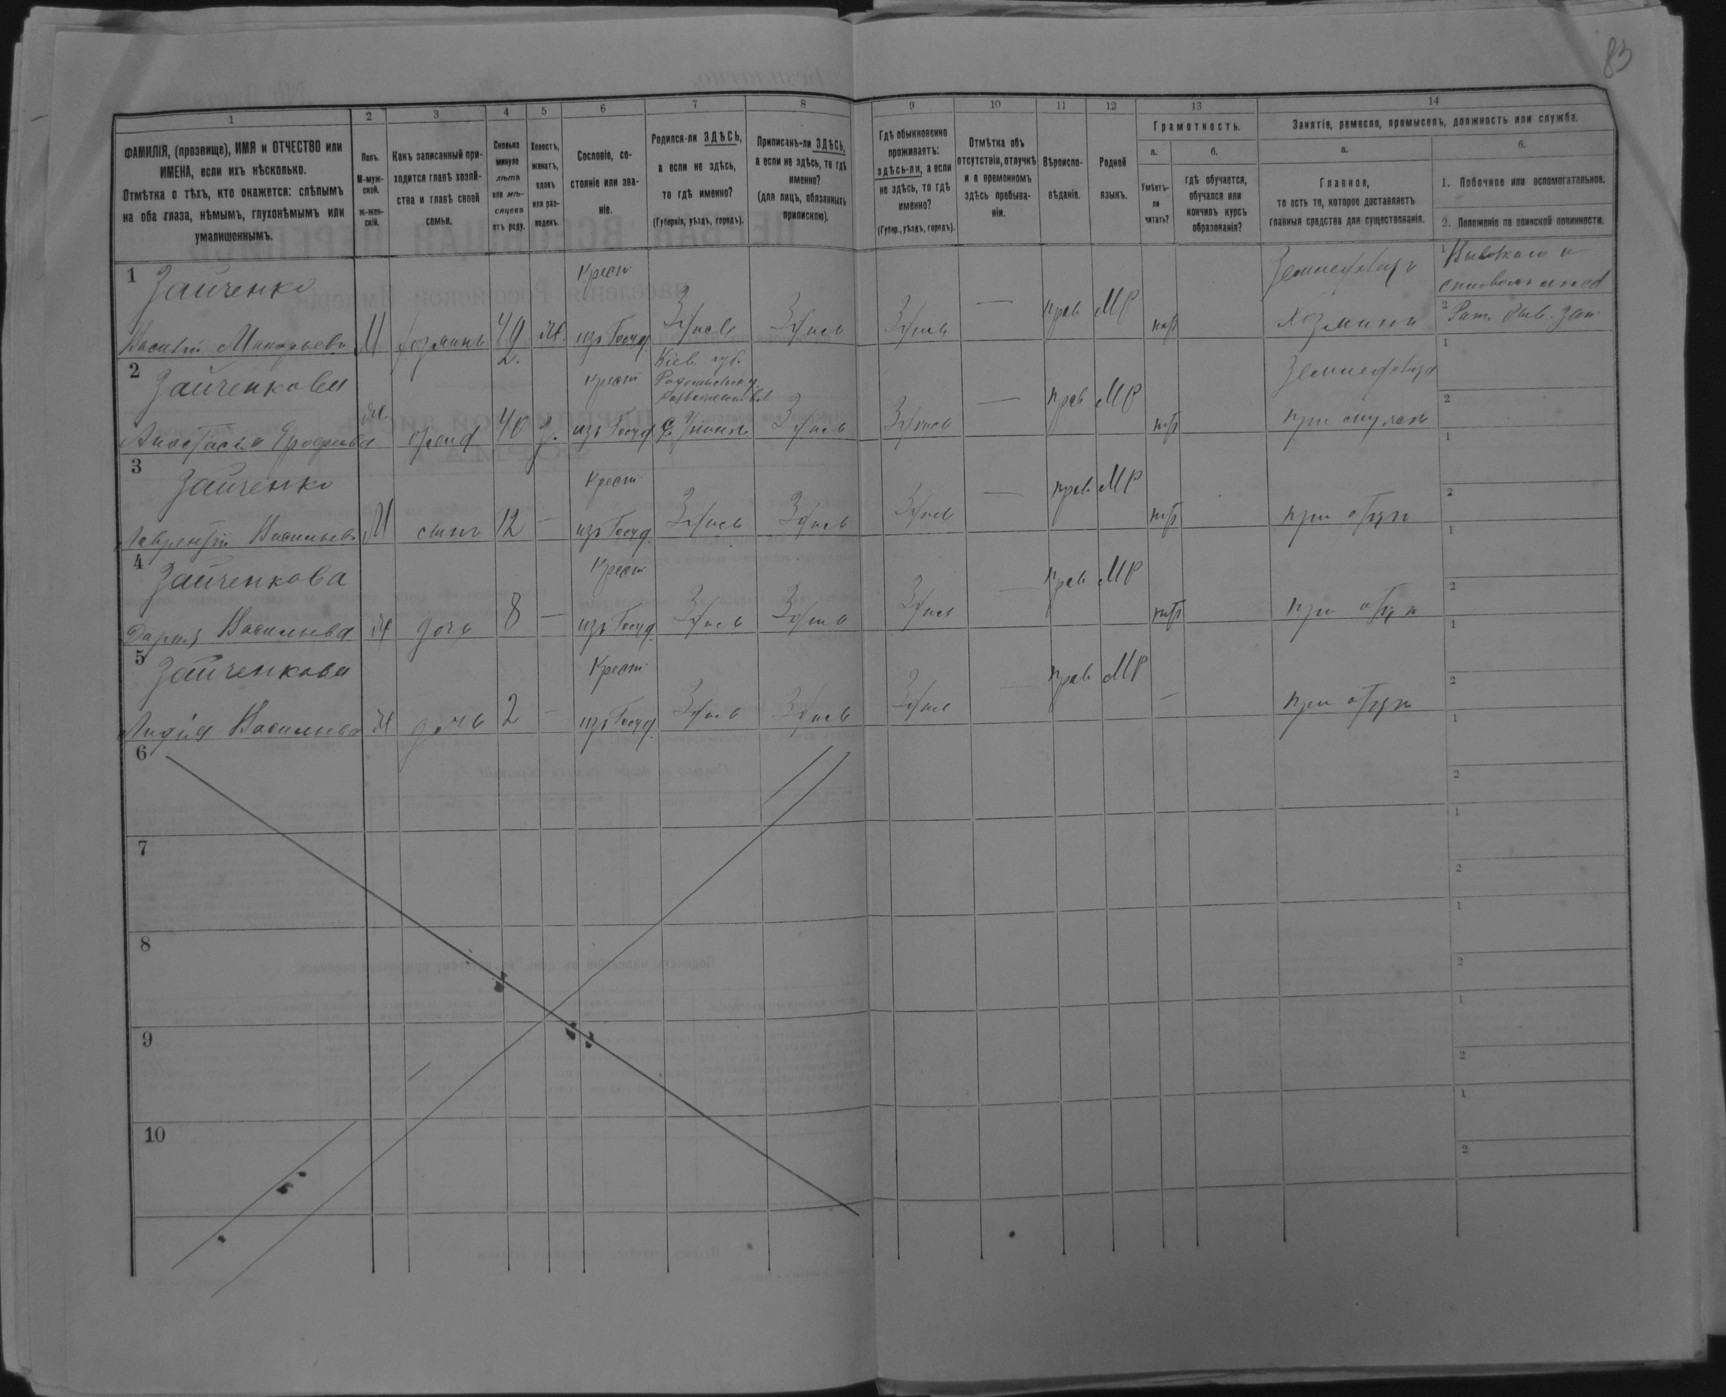 83
1
2
3
4
5
6
7
8
9
10
11
12
13
14
ФАМИЛІЯ, (прозвище), ИМЯ и ОТЧЕСТВО или
ИМЕНА, если ихъ нѣсколько.
Отмѣтка о тѣхъ, кто окажется: слѣпымъ
на оба глаза, нѣмымъ, глухонѣмымъ или
умалишеннымъ.
Полъ.
М-муж-
ской.
Ж-жен-
скій.
Какъ записанный при-
ходится главѣ хозяй-
ства и главѣ своей
семьи.
Сколько
минуло
лѣтъ
или мѣ-
сяцевъ
отъ роду.
Холостъ,
женатъ,
вдовъ
или раз-
веденъ.
Сословіе, со-
стояніе или зва-
ніе.
Родился-ли ЗДѢСЬ,
а если не здѣсь,
то гдѣ именно?
(Губернія, уѣздъ, городъ).
Приписанъ-ли ЗДѢСЬ,
а если не здѣсь, то гдѣ
именно?
(для лицъ, обязанныхъ
припискою).
Гдѣ обыкновенно
проживаетъ:
здѣсь-ли, а если
не здѣсь, то гдѣ
именно?
(Губер., уѣздъ, городъ).
Отмѣтка объ
отсутствіи, отлучкѣ
и о временномъ
здѣсь пребыва-
ніи.
Вѣроиспо-
вѣданіе.
Родной
языкъ.
Грамотность.
а.
Умѣетъ-
ли
читать?
б.
гдѣ обучается,
обучался или
кончилъ курсъ
образованія?
Занятіе, ремесло, промыселъ, должность или служба.
а.
Главное,
то есть то, которое доставляетъ
главныя средства для существованія.
б.
1. Побочное или вспомогательное.
2. Положеніе по воинской повинности.
1 Зайченко Крест Земледѣлецъ 1
Василій М 49 ж. изъ Госуд. Здѣсь Здѣсь Здѣсь — прав МР нѣтъ 2
2 Зайченкова Крест Кіев. губ. Земледѣл 1
Анастасія Ерофеева ж 40 з. изъ Госуд Здѣсь Здѣсь — прав МР нѣтъ при 2
3 Зайченко Крест 1
Лаврентій Васильевъ М сынъ 12 — изъ Госуд. Здѣсь Здѣсь Здѣсь — прав МР нѣтъ при отцѣ 2
4 Зайченкова Крест 1
Дарья Васильева ж дочь 8 — изъ Госуд. Здѣсь Здѣсь Здѣсь — прав МР нѣтъ при отцѣ 2
5 Зайченкова Крест 1
Лидія Васильева ж дочь 2 — изъ Госуд. Здѣсь Здѣсь Здѣсь — прав МР — при отцѣ 2
6 1
2
7 1
2
8 1
2
9 1
2
10 1
2